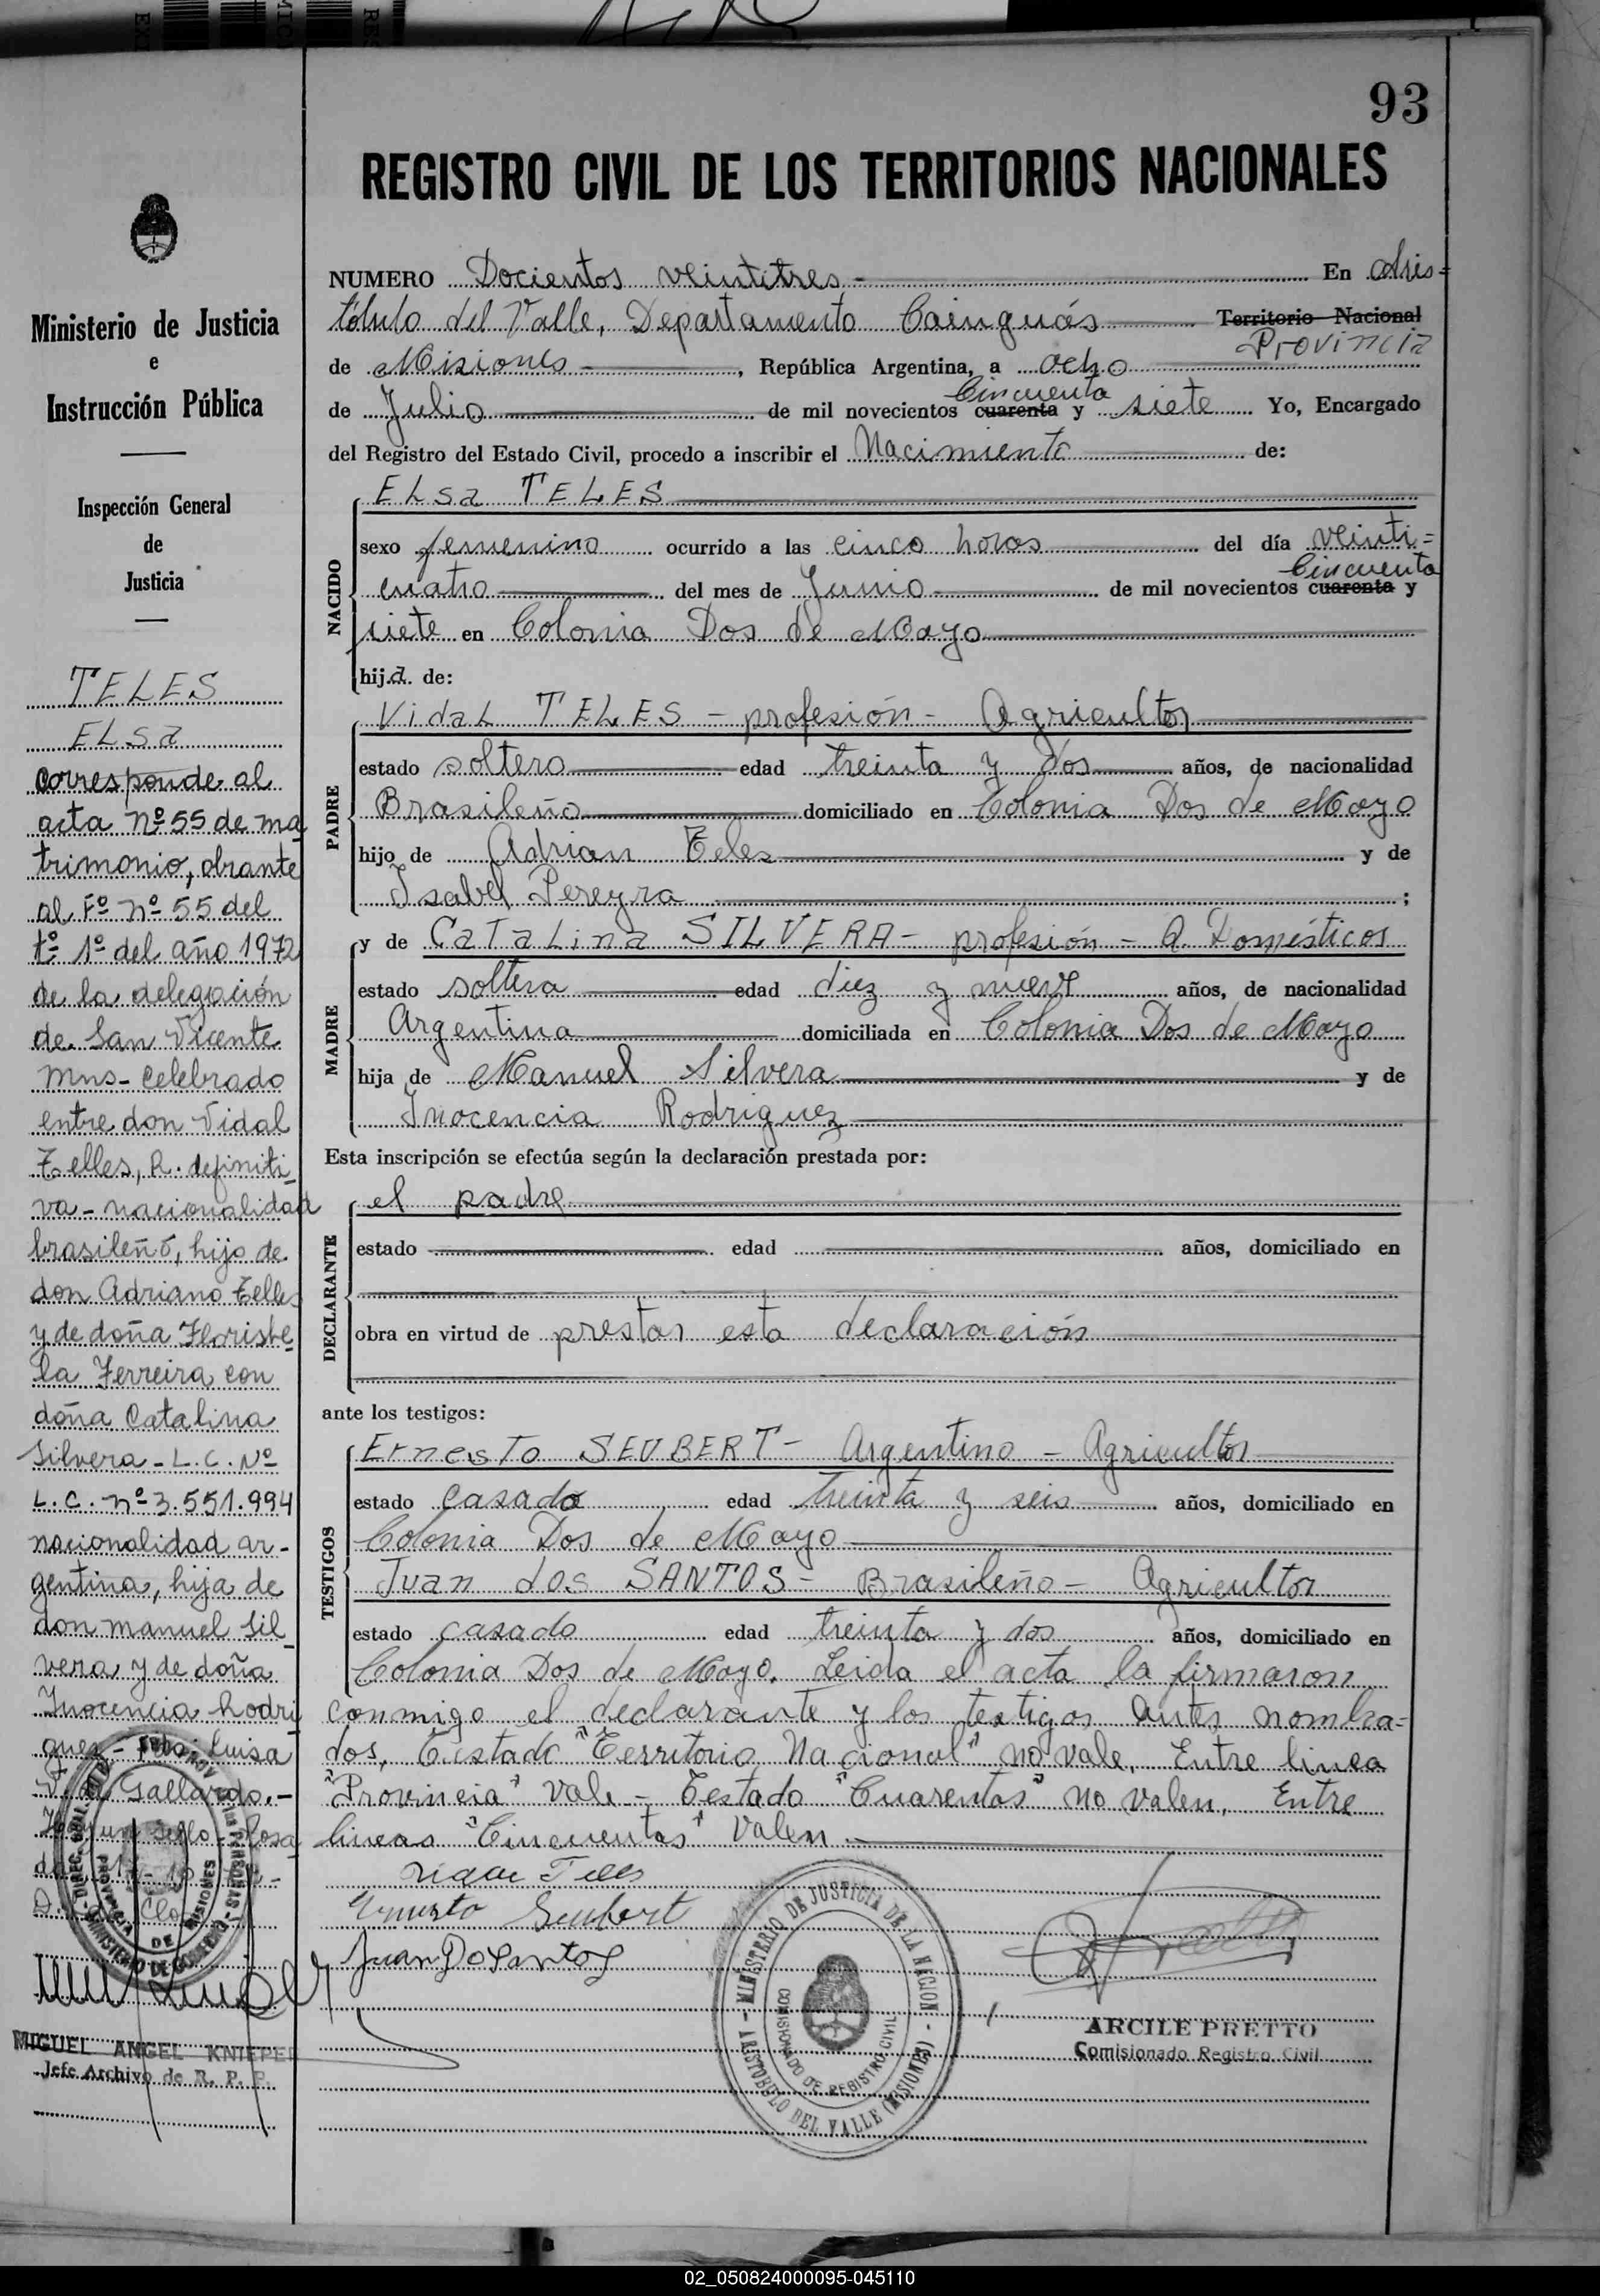 93
REGISTRO CIVIL DE LOS TERRITORIOS NACIONALES
Ministerio de Justicia
e
Instrucción Pública
Inspección General
de
Justicia
TELES
ELsa
Corresponde al
acta Nº 55 de ma
trimonio, obrante
al Fº Nº 55 del
tº 1º del año 1972
de la delegación
de San Vicente
Mns - Celebrado
entre don Vidal
Telles, R. definiti
va - nacionalidad
brasileño, hijo de
don Adriano Telles
y de doña Floriste
la Ferreira con
doña Catalina
Silvera - L.C. Nº
L.C. Nº 3.551.994
nacionalidad ar-
gentina, hija de
don Manuel Sil
vera y de doña
Inocencia Rodri
guez - Luisa
Gallardo.-
sello
MIGUEL ANGEL KNIEPEL
Jefe Archivo de R. P. P.
NUMERO Docientos veintitres - En Aris=
tóbulo del Valle, Departamento Cainguás Territorio Nacional
Provincia
de Misiones, República Argentina, a ocho
Cincuenta
de Julio de mil novecientos cuarenta y siete Yo, Encargado
del Registro del Estado Civil, procedo a inscribir el Nacimiento de:
NACIDO
ELsa TELES
sexo femenino ocurrido a las cinco horas del día veinti=
Cincuenta
cuatro del mes de Junio de mil novecientos cuarenta y
siete en Colonia Dos de Mayo
hija de:
PADRE
VidaL TELES - profesión - Agricultor
estado soltero edad treinta y dos años, de nacionalidad
Brasileño domiciliado en Colonia Dos de Mayo
hijo de Adrian Teles y de
Isabel Pereyra ;
MADRE
y de CaTaLina SILVERA - profesión - Q. Domésticos
estado soltera edad diez y nueve años, de nacionalidad
Argentina domiciliada en Colonia Dos de Mayo
hija de Manuel Silvera y de
Inocencia Rodriguez
Esta inscripción se efectúa según la declaración prestada por:
DECLARANTE
el padre
estado edad años, domiciliado en
obra en virtud de prestar esta declaración
ante los testigos:
TESTIGOS
Ernesto SEUBERT - Argentino - Agricultor
estado casado edad treinta y seis años, domiciliado en
Colonia Dos de Mayo
Juan dos SANTOS - Brasileño - Agricultor
estado casado edad treinta y dos años, domiciliado en
Colonia Dos de Mayo. Leida el acta la firmaron
conmigo el declarante y los testigos antes nombra=
dos. Testado "Territorio Nacional" no vale. Entre linea
"Provincia" vale - Testado "Cuarentas" no valen. Entre
lineas "Cincuentas" valen.
Ernesto Seubert
Juan Dosantos
MINISTERIO DE JUSTICIA DE LA NACION
COMISIONADO DE REGISTRO CIVIL
ARISTOBULO DEL VALLE (MISIONES)
ARCILE PRETTO
Comisionado Registro Civil
02_050824000095-045110